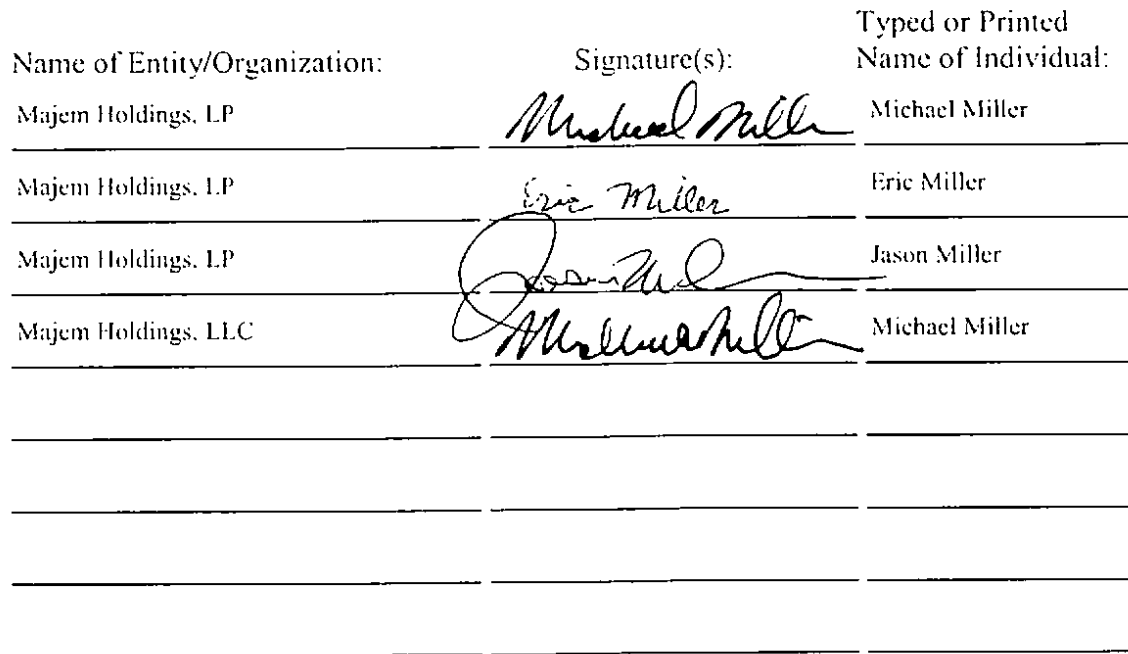 Typed or Printed
Name of Entity/Organization: Signature(s): Name of Individual:
Majem Holdings, LP Michael Miller Michael Miller
Majem Holdings, LP Eric Miller Eric Miller
Majem Holdings, LP Jason Miller
Majem Holdings, LLC Michael Miller Michael Miller